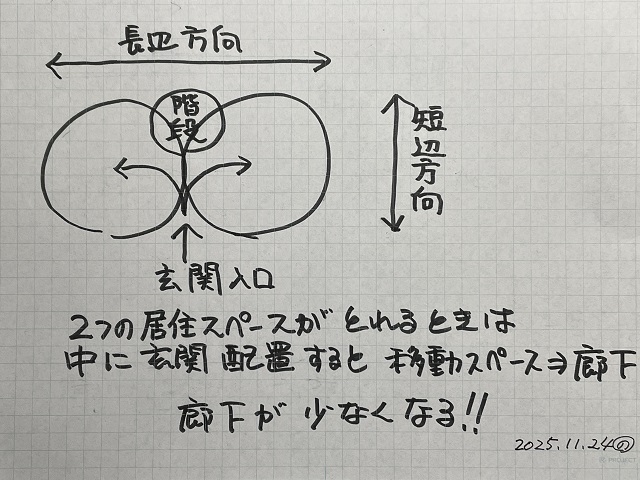 長辺方向
階
段
短辺方向
玄関入口
2つの居住スペースがとれるときは
中に玄関配置すると 移動スペース⇒廊下
廊下が少なくなる!!
2025.11.24の